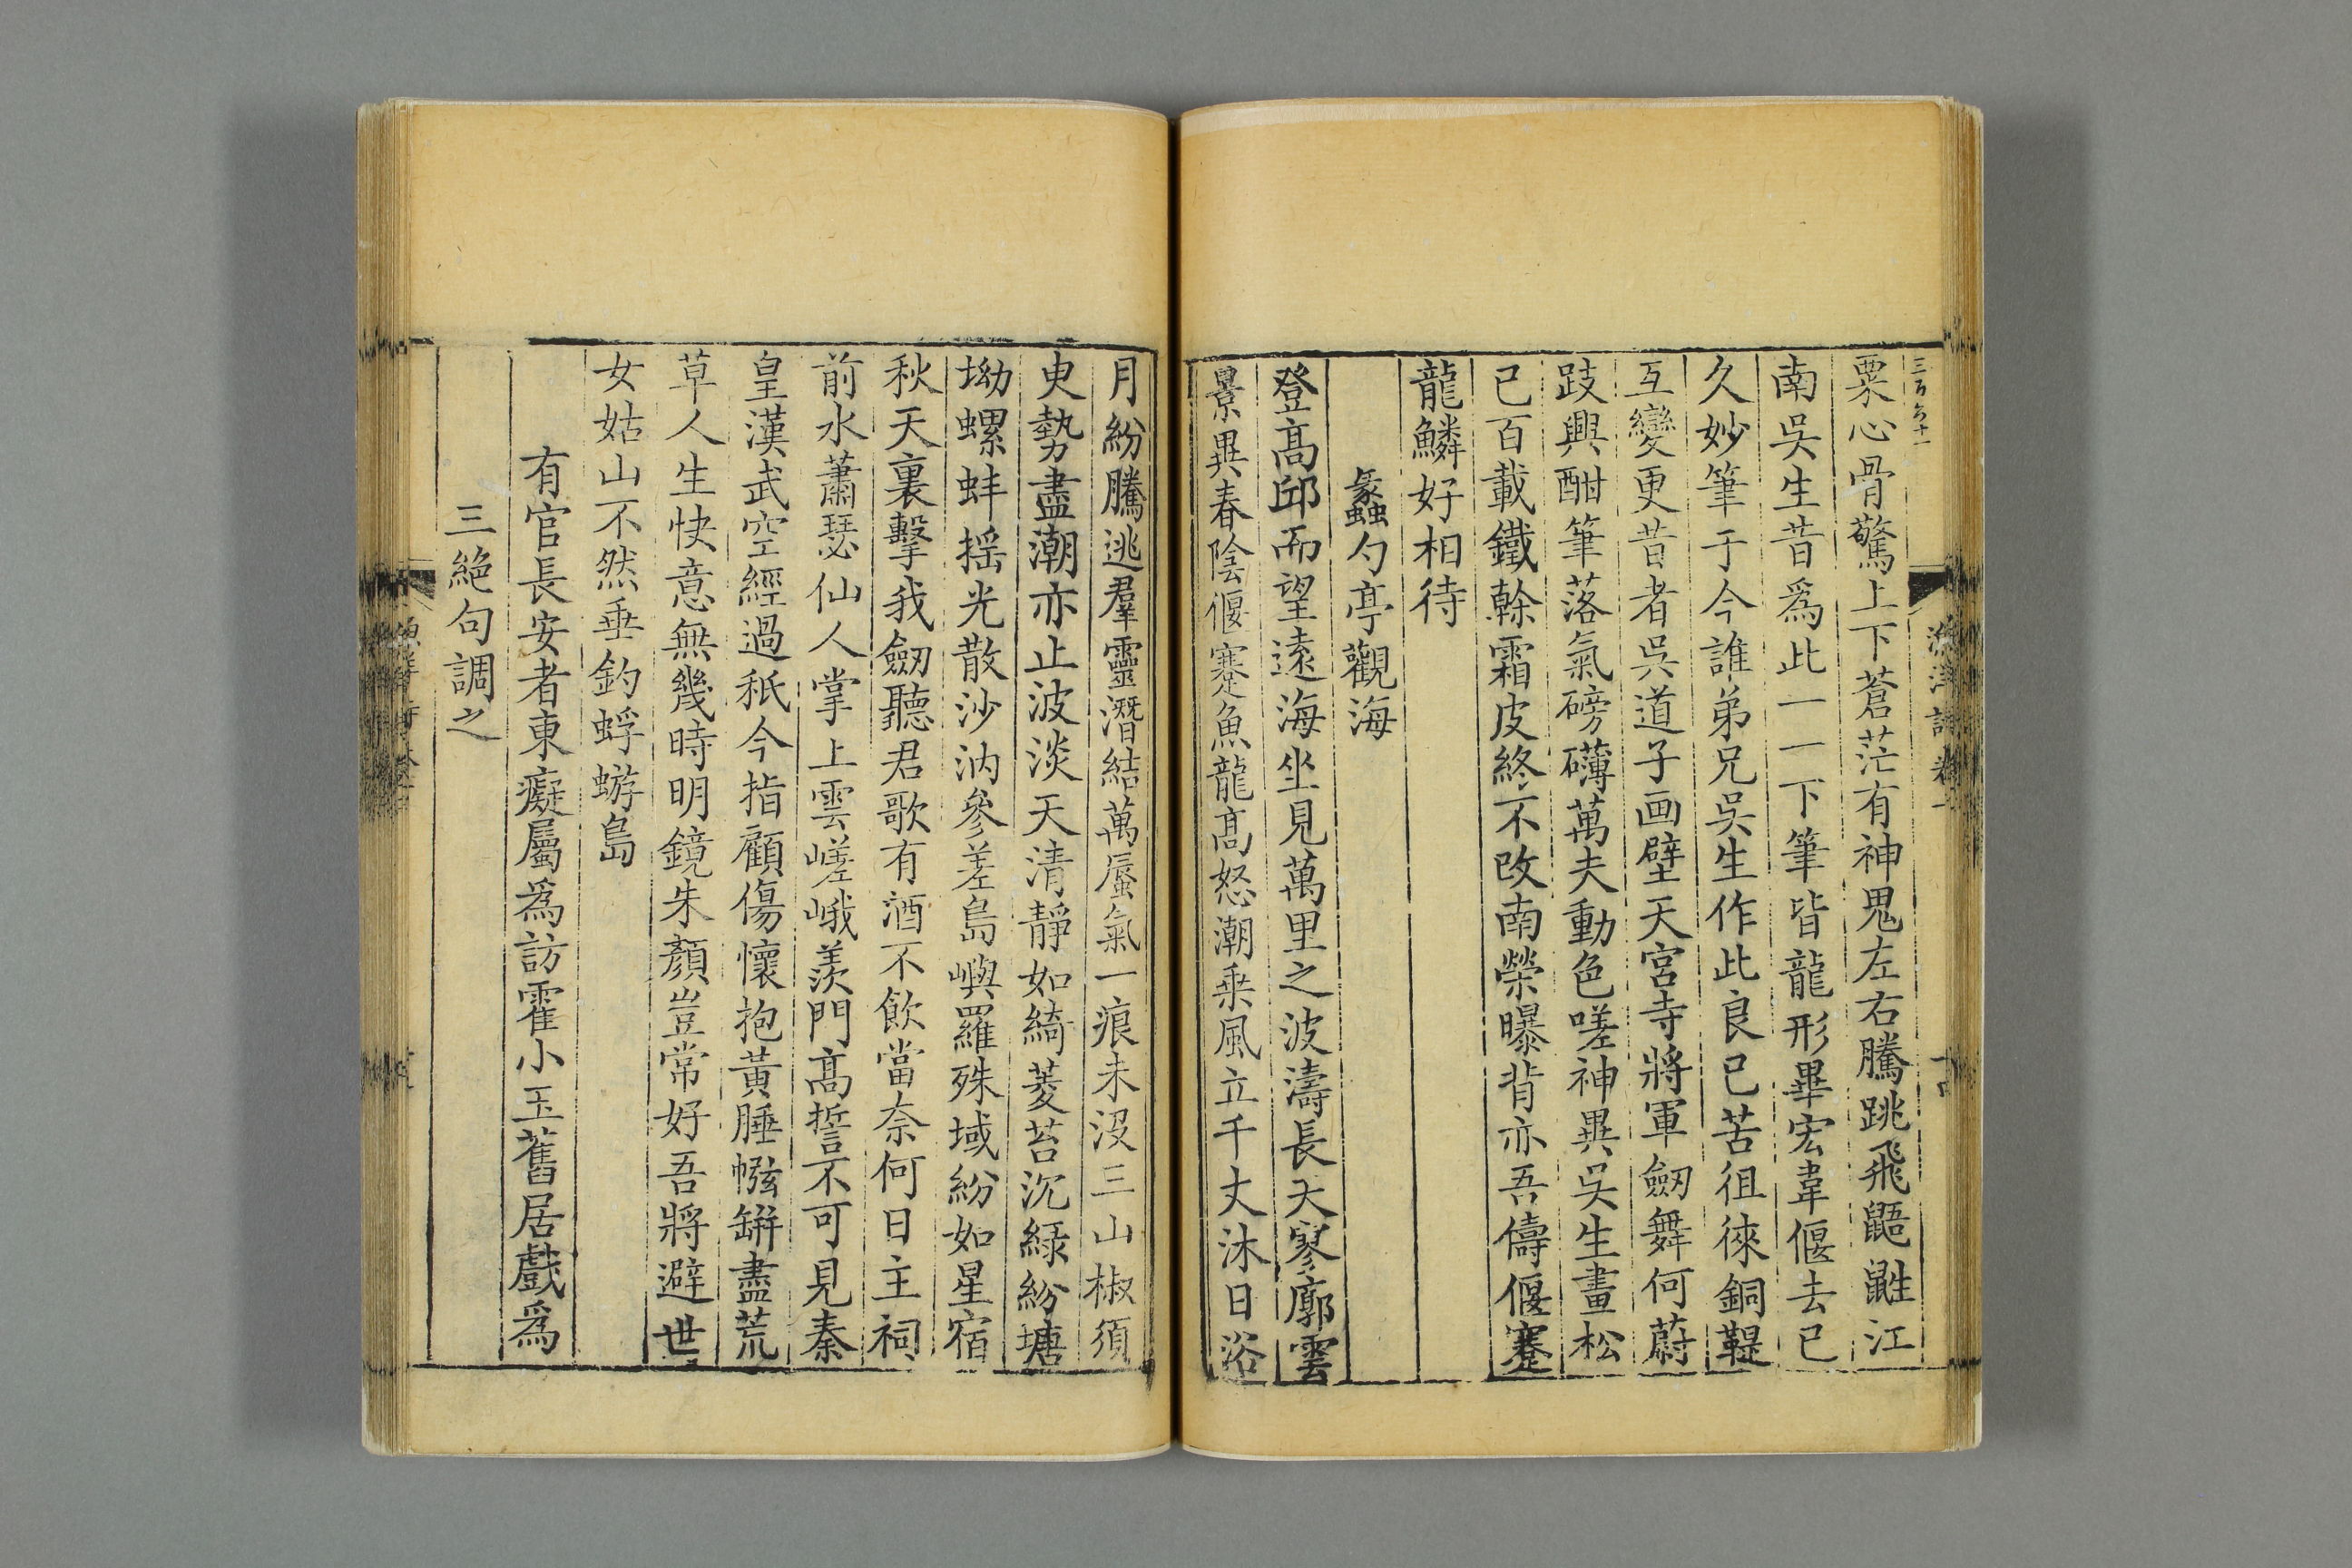 三百六十一
粟心骨驚上下蒼茫有神鬼左右騰跳飛鼯鼪江
南吳生昔爲此一一下筆皆龍形畢宏韋偃去已
久妙筆于今誰弟兄吳生作此良已苦徂徠銅鞮
互變更昔者吳道子画壁天宮寺將軍劒舞何蔚
跂興酣筆落氣磅礴萬夫動色嗟神異吳生畫松
已百載鐵榦霜皮終不改南榮曝背亦吾儔偃蹇
龍鱗好相待
蠡勺亭觀海
登高邱而望遠海坐見萬里之波濤長天寥廓雲
景異春陰偃蹇魚龍高怒潮乗風立千丈沐日浴
月紛騰逃羣靈潛結萬蜃氣一痕未沒三山椒須
臾勢盡潮亦止波淡天清靜如綺菱苔沉緑紛塘
坳螺蚌揺光散沙汭參差島嶼羅殊域紛如星宿
秋天裏擊我劒聽君歌有酒不飲當奈何日主祠
前水蕭瑟仙人掌上雲嵯峨羨門高誓不可見秦
皇漢武空經過秪今指顧傷懷抱黃腄㡉缾盡荒
草人生快意無幾時明鏡朱顏豈常好吾將避世
女姑山不然垂釣蜉蝣島
有官長安者東癡屬爲訪霍小玉舊居戲爲
三絕句調之